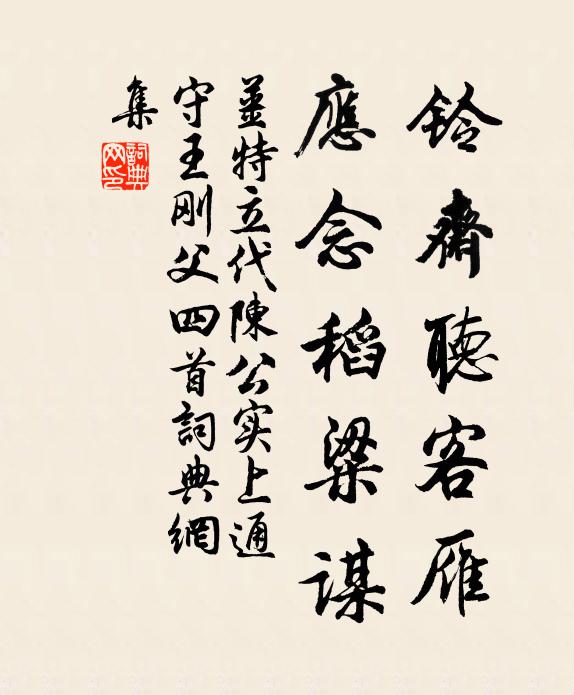 鈴齋聽客雁
應念稻粱謀
姜特立代陳公实上通
守王剛父四首詞典網
集
詞典網印